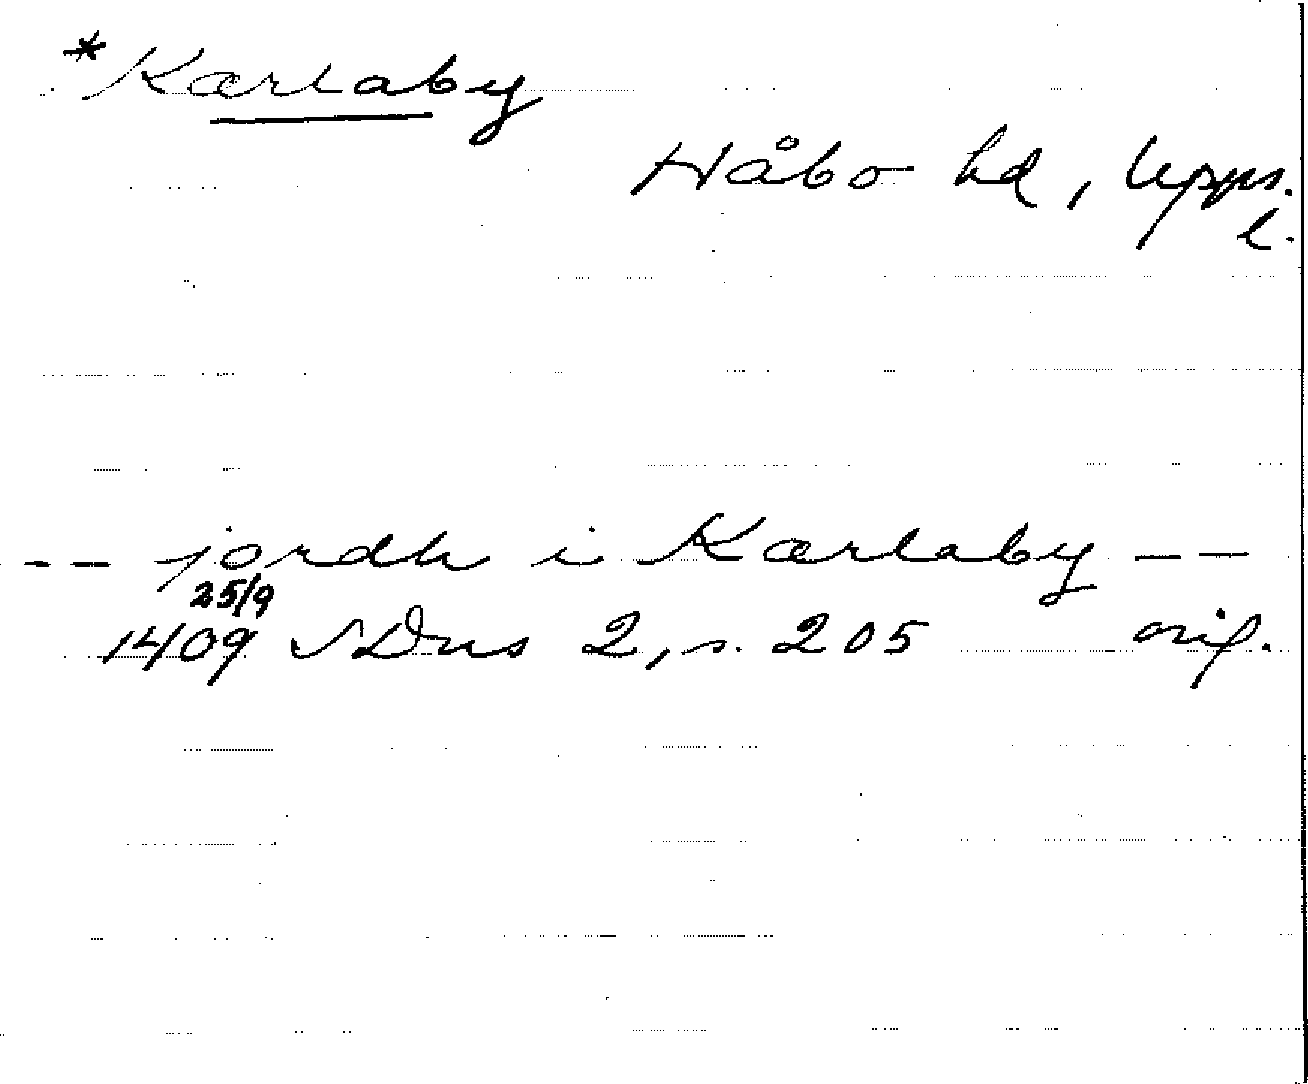 *Kærlaby
Håbo hd, Upps.
l.
-- jordh i Kærlaby --
25/9
1409 SDns 2, s. 205 orig.